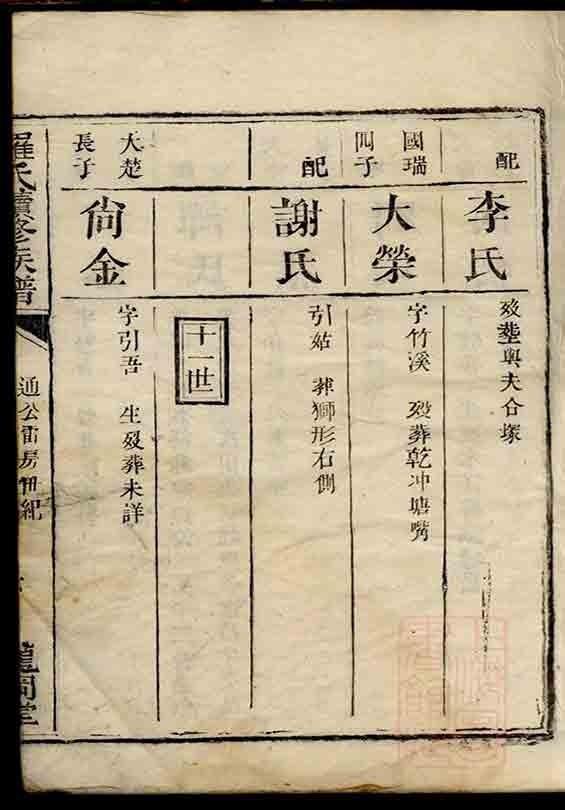 配
李氏
歿塟與夫合塚
國瑞
四子
大榮
字竹溪 歿葬乾冲塘嘴
配
謝氏
引姑 葬獅形右側
十一世
大楚
長子
尙金
字引吾 生歿葬未詳
羅氏續修族譜
通公雷房世紀